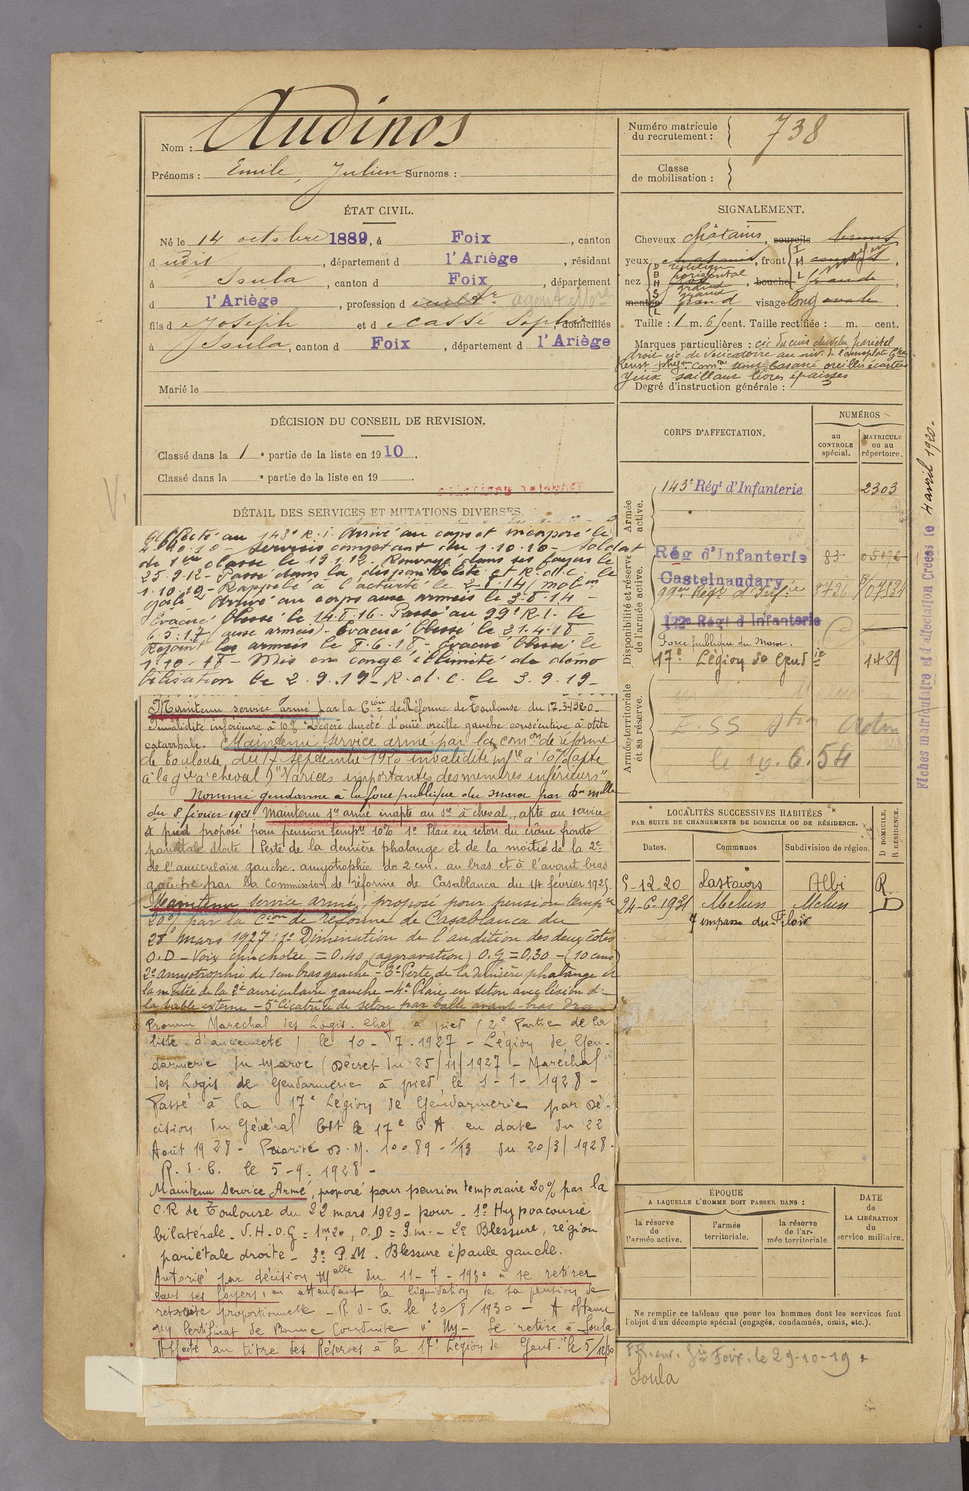 Nom : Audinos
Prénoms : Emile, Julien Surnoms :
Numéro matricule du recrutement : 738
Classe de mobilisation :
ÉTAT CIVIL.
Né le 14 octobre 1889, à Foix, canton
d dit, département d l'Ariège, résidant
à Soula, canton d Foix, département
d l'Ariège, profession d
fils d Joseph et d Casse Sophie domiciliés
à Soula, canton d Foix, département d l'Ariège
Marié le
SIGNALEMENT.
Cheveux châtains, sourcils
yeux, front
nez, bouche
menton, visage long ovale
Taille : 1 m. 61 cent. Taille rectifiée : m. cent.
Marques particulières : cic du cuir chevelu pariétal
droit cic de vésicatoire au niv. de l'omoplate
teint basané oreilles écartées
Yeux saillant lèvres épaisses
Degré d'instruction générale :
DÉCISION DU CONSEIL DE REVISION.
Classé dans la 1e partie de la liste en 1910.
Classé dans la e partie de la liste en 19
DÉTAIL DES SERVICES ET MUTATIONS DIVERSES.
Affecté au 143e R.I. Arrivé au corps et incorporé le
2.10.10 - Services comptant du 1.10.10 - Soldat
de 1ère classe le 19.4.12 - Renvoyé dans ses foyers le
25.9.12 - Passé dans la disponibilité et R. act. le
1.10.12 - Rappelé à l'activité le 2.8.14 mobm
gale Arrivé au corps aux armées le 3.8.14 -
Evacué blessé le 14.8.16 - Passé au 99e R.I. le
6.5.17 (aux armées) - Evacué blessé le 21.4.18
Rejoint les armées le 8.6.18 - Evacué blessé le
1.10.18 - Mis en congé illimité de démo
bilisation le 2.9.19 - R.d.C. le 3.9.19 -
Maintenu service armé par la Cion de Réforme de Toulouse du 17.3.1920 -
Invalidité inférieure à 10% Légère dureté d'ouïe oreille gauche consécutive à otite
catarrhale. Maintenu service armé par la comon de réforme
de Toulouse, du 17 septembre 1920 invalidité infre à 10% (apte
à la gie à cheval) "Varices importantes des membres inférieurs"
Nommé gendarme à la force publique du Maroc par Don mlle
du 8 février 1921. Maintenu Ser armé inapte au Sce à cheval, apte au service
à pied proposé pour pension tempre 10% 1° Plaie en séton du crâne fronto
pariétale droite. Perte de la dernière phalange et de la moitié de la 2e
de l'auriculaire gauche. amyotrophie de 2 cm. au bras et à l'avant bras
gauche par la Commission de réforme de Casablanca du 14 février 1925.
Maintenu service armé, proposé pour pension tempre
20% par la Cion de réforme de Casablanca du
28 mars 1927 : 1° Diminution de l'audition des deux côtés
O.D - Voix chuchotée = 0.40 (aggravation) O.G = 0,30 - (10 cms)
2° amyotrophie de 1 cm bras gauche - 3° Perte de la dernière phalange et
la moitié de la 2e auriculaire gauche - 4° Plaie en séton avec lésion de
la table externe - 5° Cicatrice de séton par balle avant-bras dro
Promu Maréchal des Logis-chef à pied (2e Partie de la
liste d'ancienneté) le 10-7-1927 - Légion de Gen-
darmerie du Maroc (Décret du 25/11/1927 - Maréchal
des Logis de Gendarmerie à pied le 1-1-1928 -
Passé à la 17e Légion de Gendarmerie par Dé-
cision du Général Cdt le 17e C A en date du 22
Août 1928 - Priorité D.M. 10089 - 1/93 du 20/3/1928 -
R.d.C. le 5-9.1928 -
Maintenu Service Armé, proposé pour pension temporaire 20% par la
C.R de Toulouse du 22 mars 1929 - pour - 1° Hypoacousie
bilatérale. V.H.O.G = 1m20, O.D = 3m. - 2° Blessure, région
pariétale droite - 3° P.M. Blessure épaule gauche.
Autorisé par décision Mlle du 11-7-1930 à se retirer
dans ses foyers, en attendant la liquidation de sa pension de
retraite proportionnelle - R.d.C. le 20/8/1930 - A obtenu
un Certificat de Bonne Conduite - Se retire à Soula
Affecté au titre des Réserves à la 17e Légion de Gend.ie
CORPS D'AFFECTATION.
NUMÉROS
au CONTROLE spécial.
MATRICULE ou au répertoire.
Armée active.
143e Régt d'Infanterie 2303
Disponibilité et réserve de l'armée active.
Rég d'Infanterie 83
Castelnaudary
99e Régt d'Infie
122e Régt d'Infanterie
Force publique du Maroc.
17e Légion de Gendie 1429
Armée territoriale et sa réserve.
le 10.6.54
Fiches matriculaire et d'affectation Créées le 4 avril 1920.
LOCALITÉS SUCCESSIVES HABITÉES
PAR SUITE DE CHANGEMENTS DE DOMICILE OU DE RÉSIDENCE.
Dates. Communes Subdivision de région.
D DOMICILE. R RÉSIDENCE.
5-12-20 Lastours Albi R
24-6-1931 Melun Melun D
7 impasse du
ÉPOQUE
A LAQUELLE L'HOMME DOIT PASSER DANS :
la réserve de l'armée active.
l'armée territoriale.
la réserve de l'armée territoriale
DATE de LA LIBÉRATION du service militaire.
Ne remplir ce tableau que pour les hommes dont les services font
l'objet d'un décompte spécial (engagés, condamnés, omis, etc.).
Foix. le 29-10-19
Soula